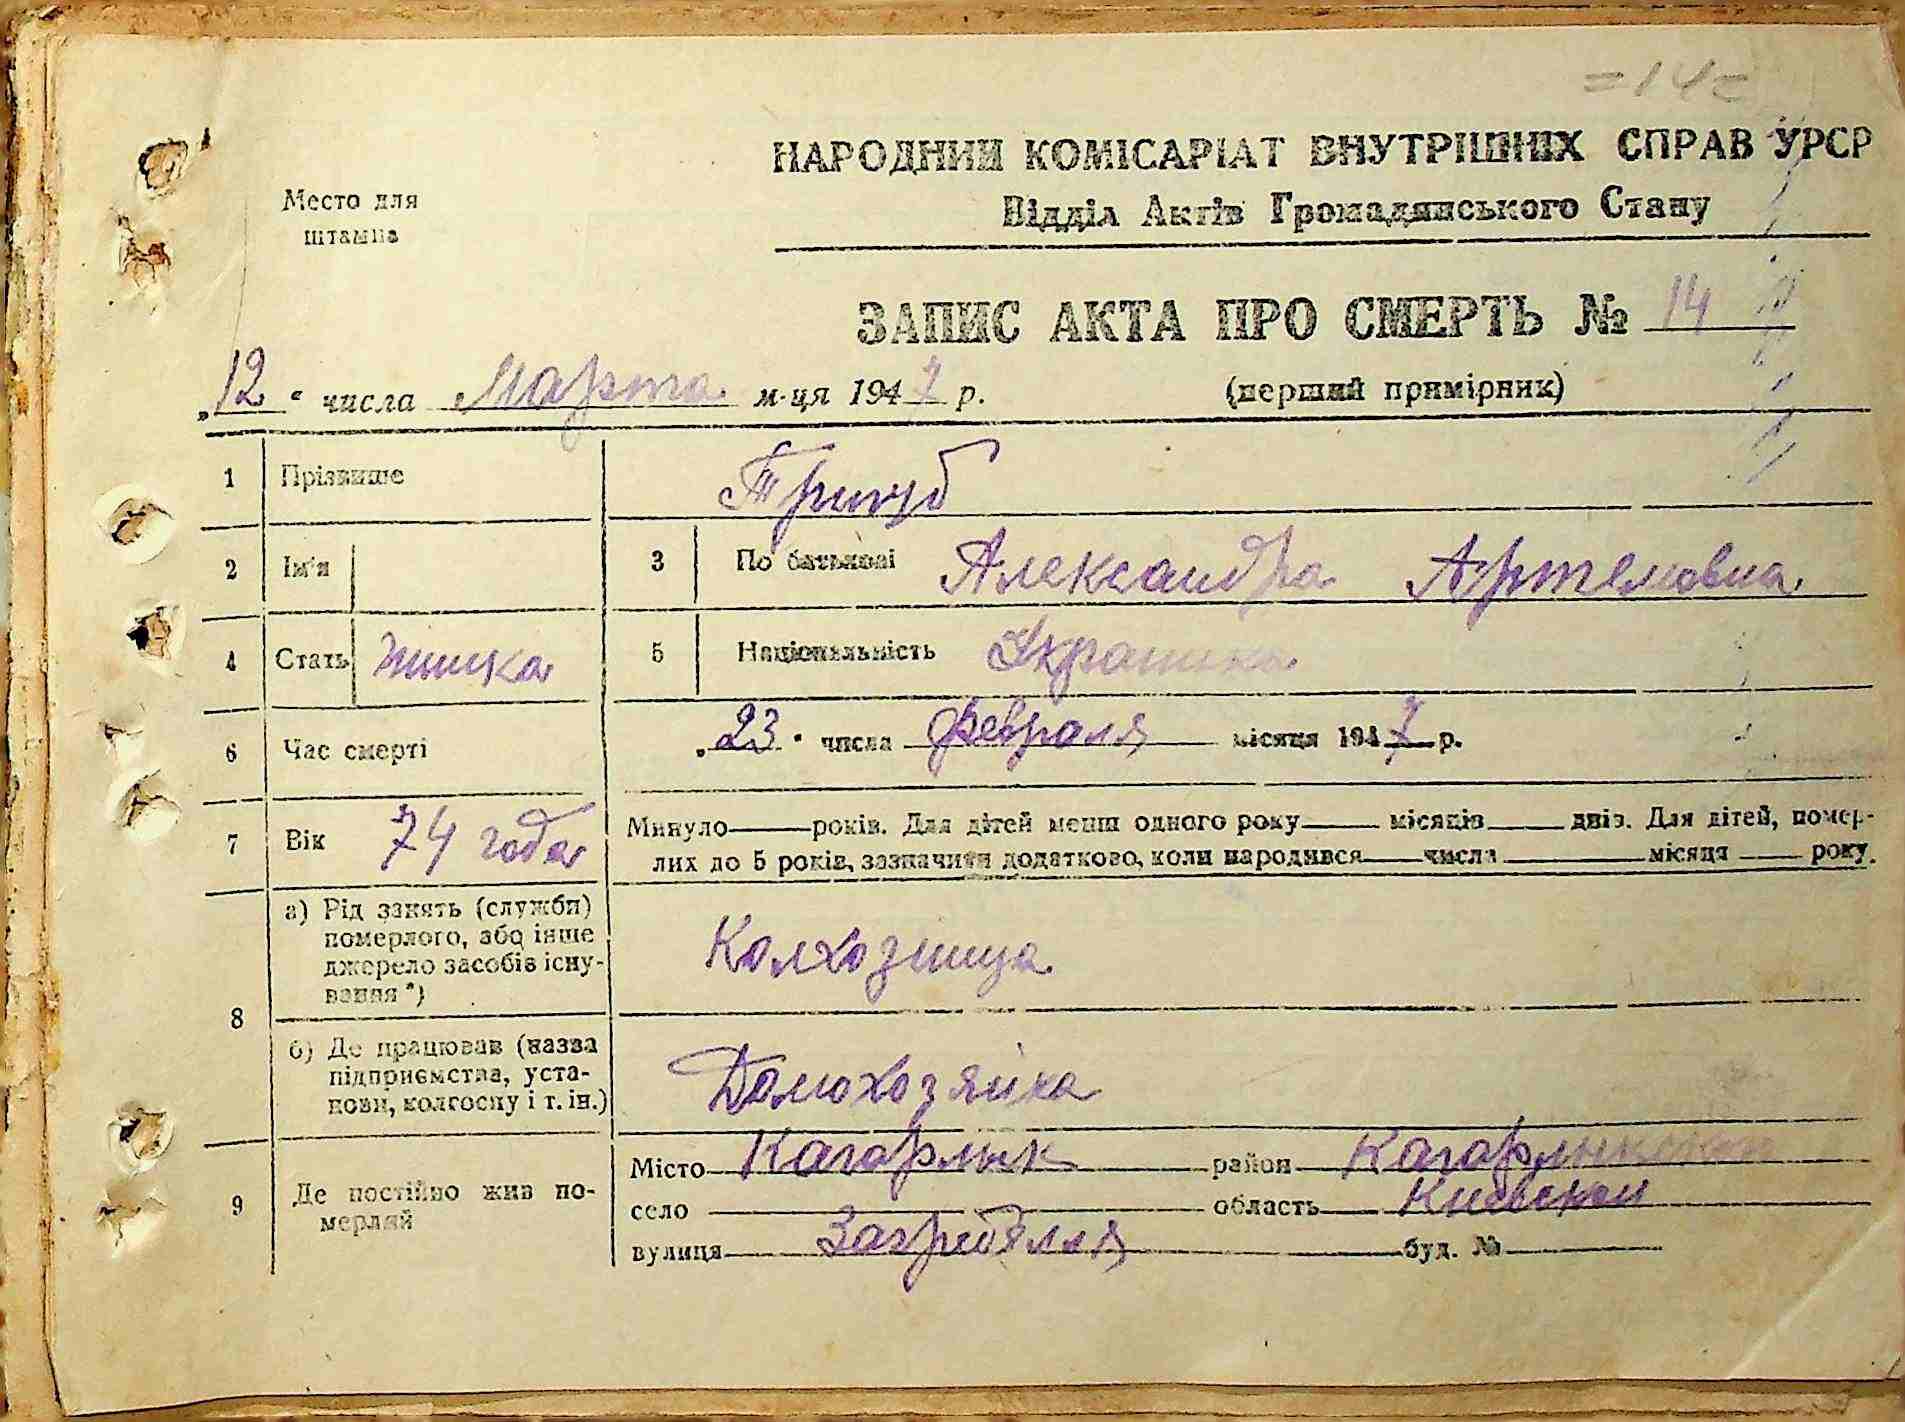 =14=
НАРОДНИЙ КОМІСАРІАТ ВНУТРІШНІХ СПРАВ УРСР
Место для штампа
Відділ Актів Громадянського Стану
ЗАПИС АКТА ПРО СМЕРТЬ № 14
„12“ числа Марта м-ця 1947 р. (перший примірник)
1 Прізвище Тригуб
2 Ім'я 3 По батькові Александра Артемовна
4 Стать жинка 5 Національність Украинка
6 Час смерті „23“ числа февраля місяця 1947 р.
7 Вік 74 года Минуло років. Для дітей менш одного року місяців днів. Для дітей, помер-
лих до 5 років, зазначити додатково, коли народився числа місяця року.
8 а) Рід занять (служби)
померлого, або інше
джерело засобів існу-
вання *) Колхозница
б) Де працював (назва
підприємства, уста-
нови, колгоспу і т. ін.) Домохозяйка
9 Де постійно жив по-
мерлий
Місто Кагарлык район Кагарлыкский
село область Киевской
вулиця Загребелля буд. №